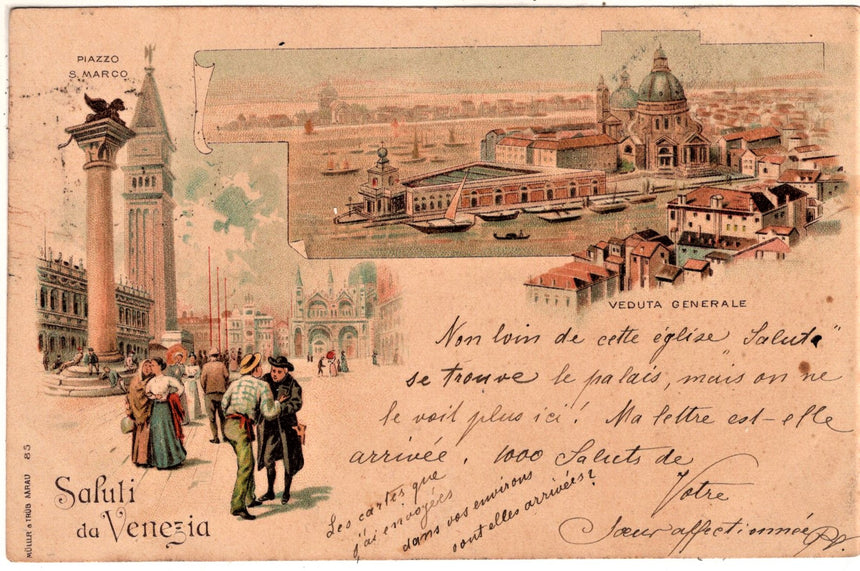 PIAZZO
S. MARCO
VEDUTA GENERALE
Non loin de cette église "Salute"
se trouve le palais, mais on ne
le voit plus ici! Ma lettre est-elle
arrivée, 1000 Saluts de
Votre
Sœur affectionnée
Les cartes que
j'ai envoyées
dans vos environs
sont elles arrivées?
Saluti
da Venezia
MÜLLER & TRÜB AARAU 85